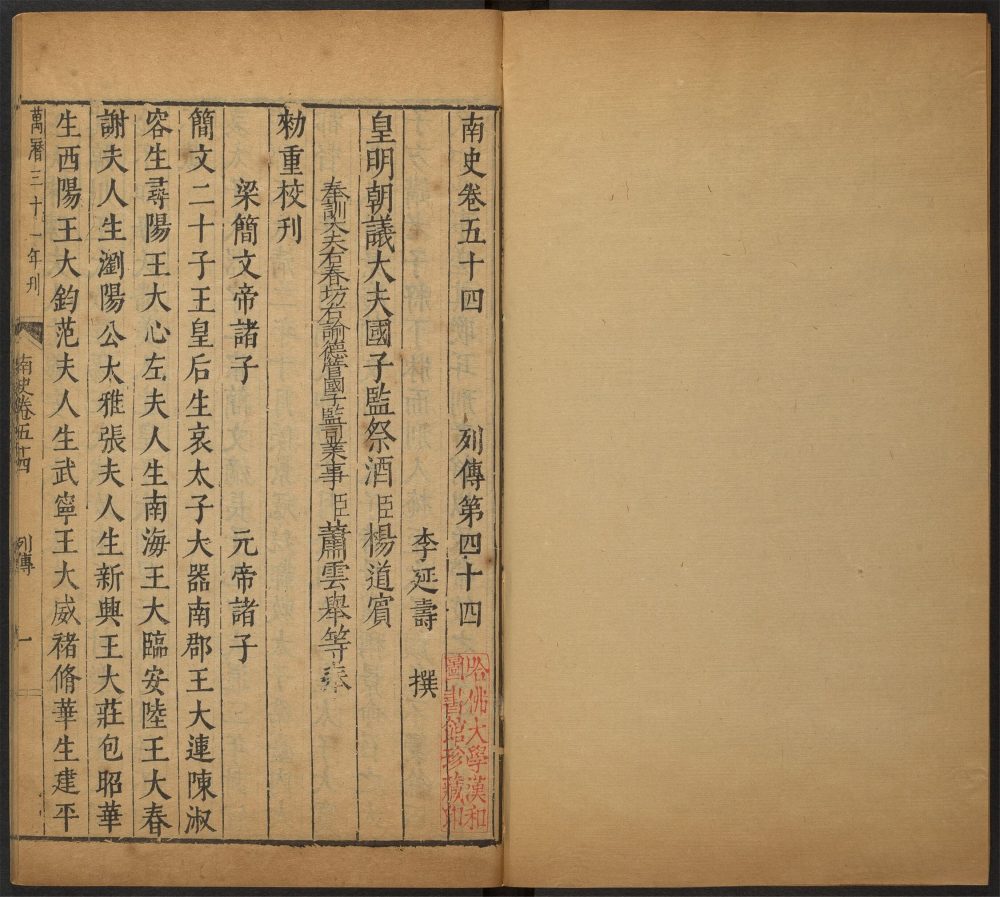 南史卷五十四 列傳第四十四
李延壽 撰
皇明朝議大夫國子監祭酒臣楊道賓
奉訓大夫右春坊右諭德管國子監司業事臣蕭雲舉等奉
勑重校刊
梁簡文帝諸子 元帝諸子
簡文二十子王皇后生哀太子大器南郡王大連陳淑
容生尋陽王大心左夫人生南海王大臨安陸王大春
謝夫人生瀏陽公大雅張夫人生新興王大莊包昭華
生西陽王大鈞范夫人生武寧王大威褚脩華生建平
萬曆三十一年刋
南史卷五十四 列傳 一
哈佛大學漢和
圖書館珍藏印